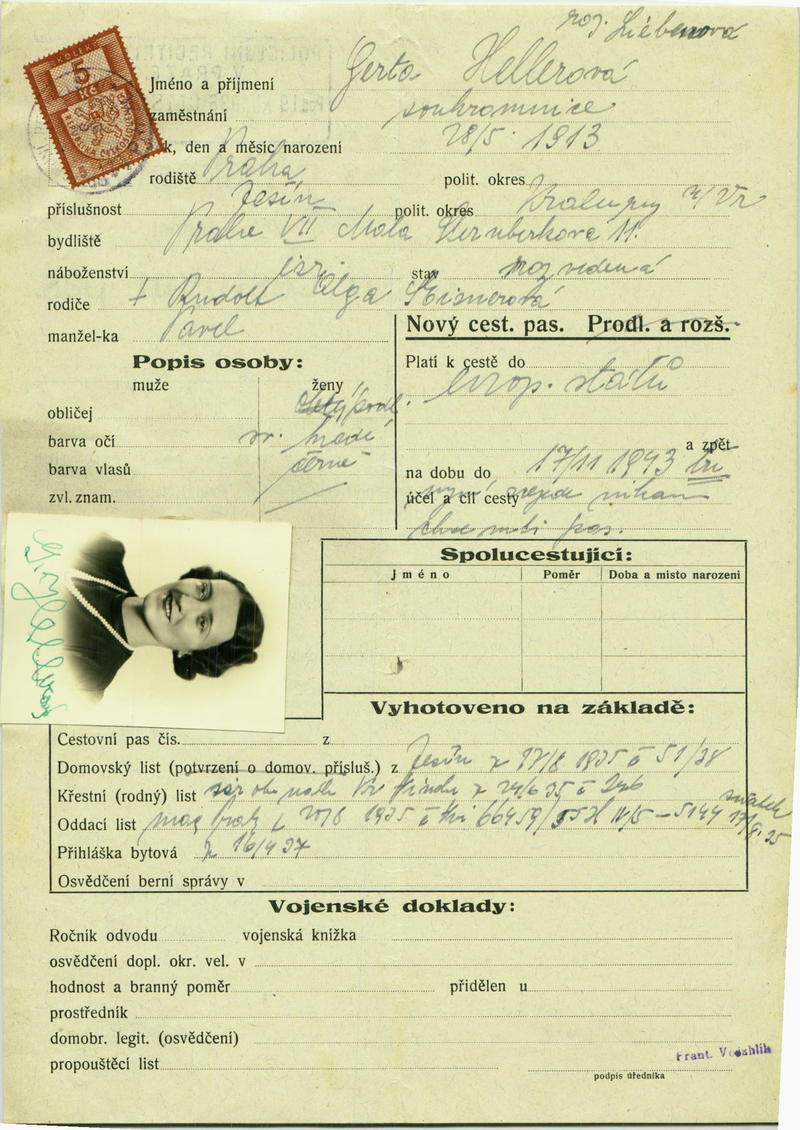 roz. Liebenová
KOLEK
5
Kč
Jméno a příjmení Gerta Hellerová
zaměstnání soukromnice
k, den a měsíc narození 28/5. 1913
rodiště Praha polit. okres
příslušnost Jesín polit. okres Kralupy n/Vr
bydliště Praha VII Malá Sternberkova 11.
náboženství isr. stav rozvedená
rodiče + Rudolf Olga
manžel-ka Pavel
Nový cest. pas. Prodl. a rozš.
Popis osoby:
muže ženy
Platí k cestě do evrop. států
obličej
barva očí hnědé
a zpět
barva vlasů černé
na dobu do 17/11 1943 tři
zvl. znam.
účel a cíl cesty
chce míti pas.
Spolucestující:
Jméno Poměr Doba a místo narození
Vyhotoveno na základě:
Cestovní pas čís. z
Domovský list (potvrzení o domov. přísluš.) z Jesín 1935 č 51/38
Křestní (rodný) list 24/6 35 č 246
Oddací list 20/8 1935 č 66459/35 IV/5 - 5144
Přihláška bytová z 16/4 37
Osvědčení berní správy v
Vojenské doklady:
Ročník odvodu vojenská knížka
osvědčení dopl. okr. vel. v
hodnost a branný poměr přidělen u
prostředník
domobr. legit. (osvědčení)
propouštěcí list
Frant.
podpis úředníka